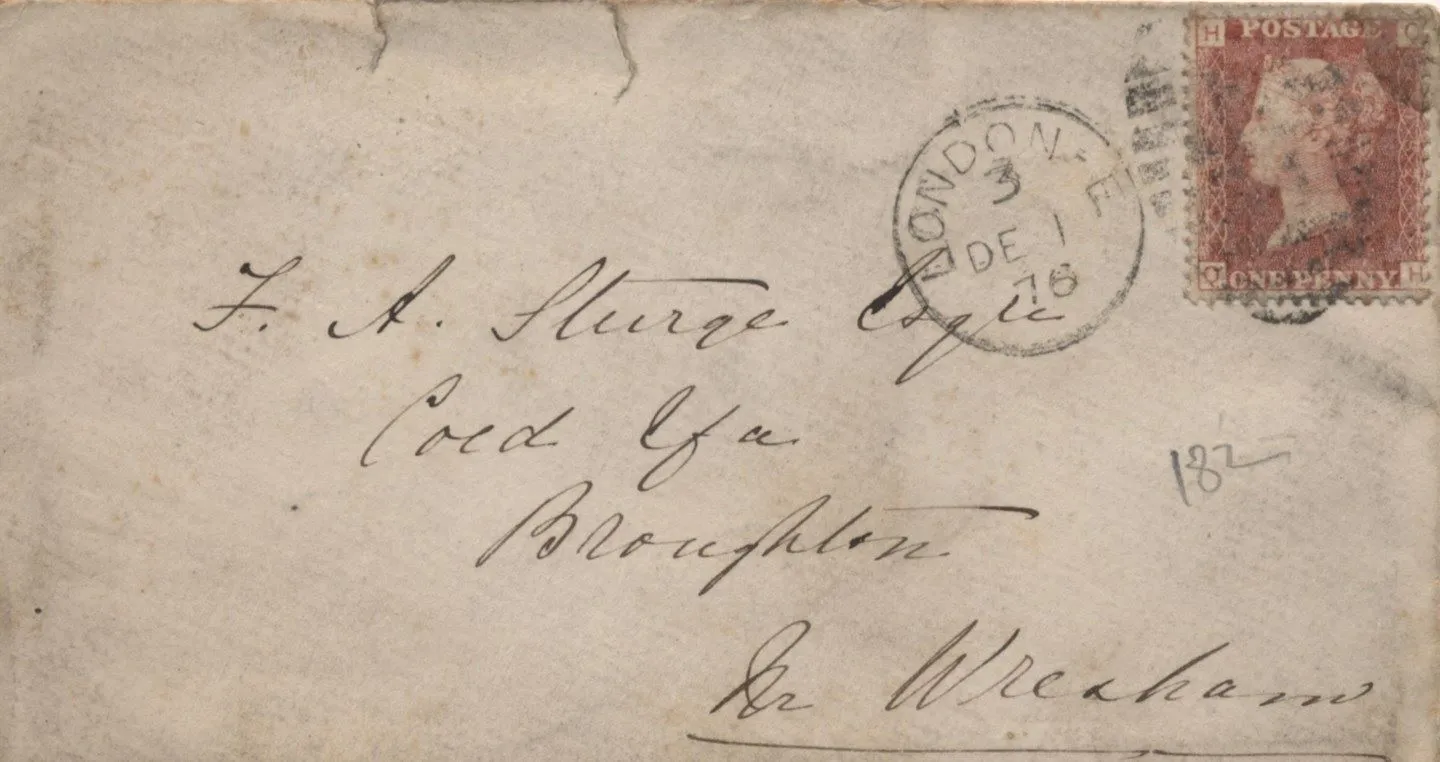 H POSTAGE Q
LONDON · E
3
DE 1
76
Q ONE PENNY H
F. A. Sturge Esqre
Coed Efa
Broughton
Nr Wrexham
182